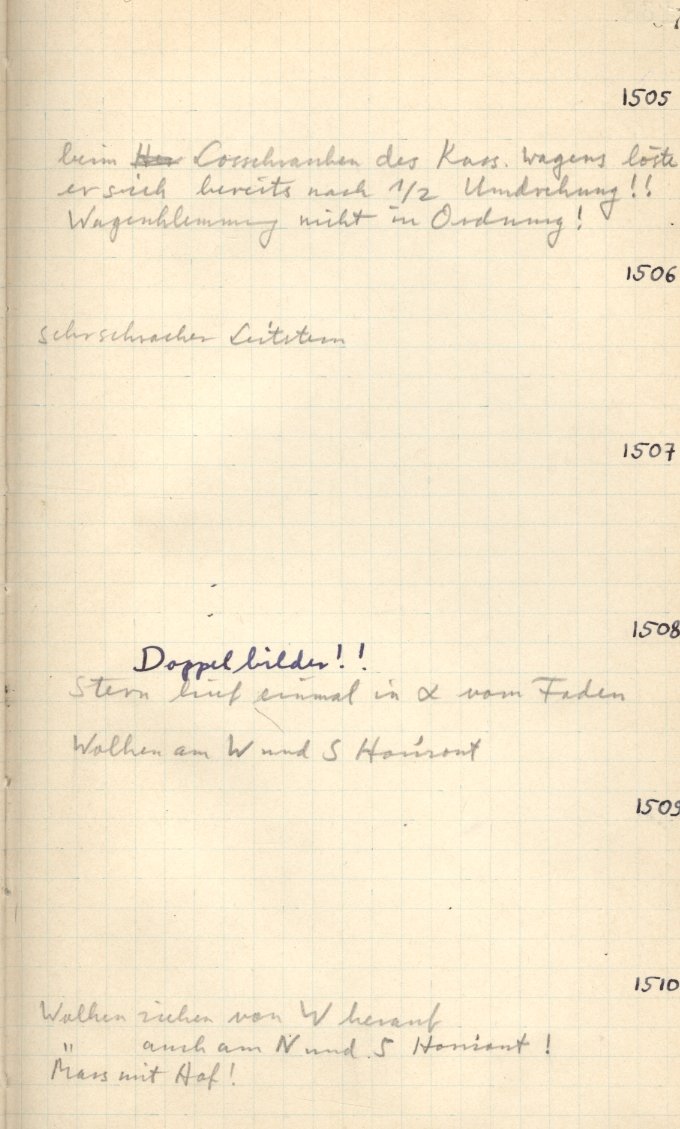 1505
beim Losschrauben des Kass. wagens löste
er sich bereits nach 1/2 Umdrehung!!
Wagenklemmung nicht in Ordnung!
1506
sehr schwacher Leitstern
1507
1508
Doppelbilder!!
Stern lief einmal in α vom Faden
Wolken am W und S Horizont
1509
1510
Wolken ziehen von W herauf
" auch am N und S Horizont!
Mars mit Hof!